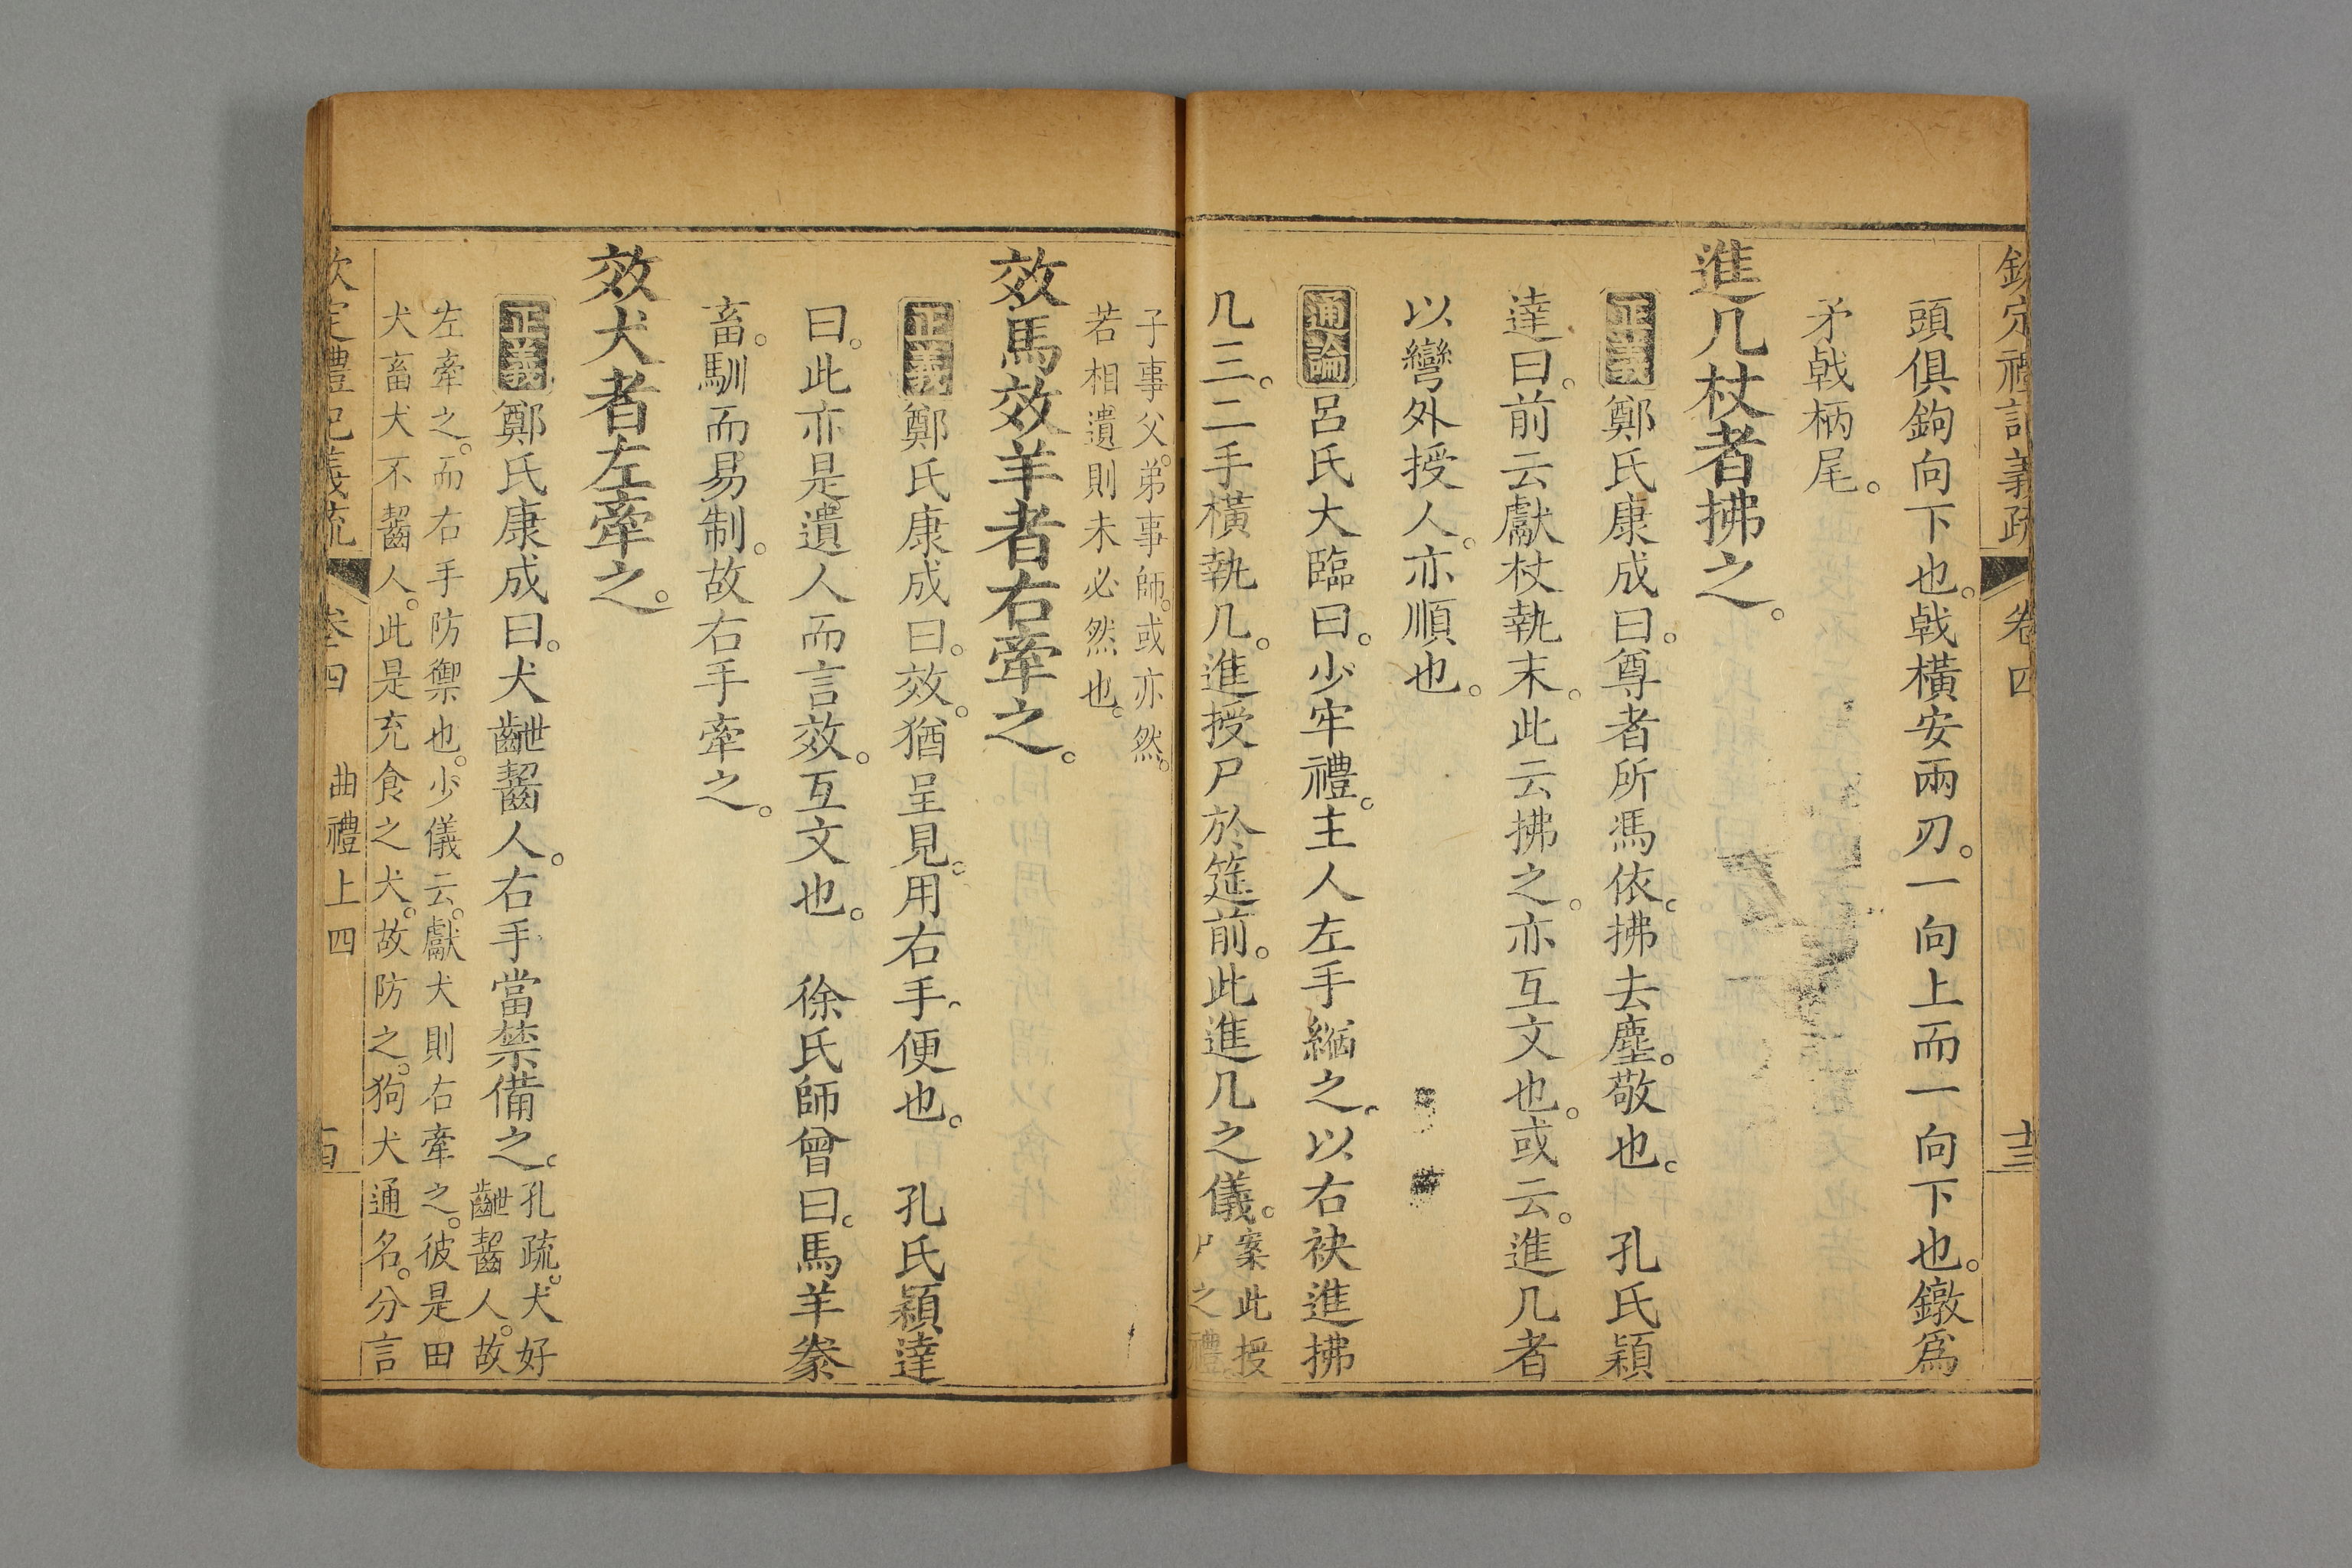 欽定禮記義疏 卷四 十三
頭俱鉤向下也。戟橫安兩刃。一向上而一向下也。鐓爲
矛戟柄尾。
進几杖者拂之。
正義鄭氏康成曰。尊者所馮依。拂去塵。敬也。 孔氏穎
達曰。前云獻杖執末。此云拂之。亦互文也。或云。進几者
以彎外授人。亦順也。
通論呂氏大臨曰。少牢禮。主人左手縮之。以右袂進拂
几三。二手橫執几。進授尸於筵前。此進几之儀。案此授
尸之禮
子事父。弟事師。或亦然。
若相遺則未必然也。
效馬效羊者右牽之。
正義鄭氏康成曰。效。猶呈見。用右手。便也。 孔氏穎達
曰。此亦是遺人而言效。互文也。 徐氏師曾曰。馬羊豢
畜。馴而易制。故右手牽之。
效犬者左牽之。
正義鄭氏康成曰。犬齛齧人。右手當禁備之。孔疏。犬好
齛齧人。故
左牽之。而右手防禦也。少儀云。獻犬則右牽之。彼是田
犬畜犬不齧人。此是充食之犬。故防之。狗犬通名。分言
欽定禮記義疏 卷四 曲禮上四